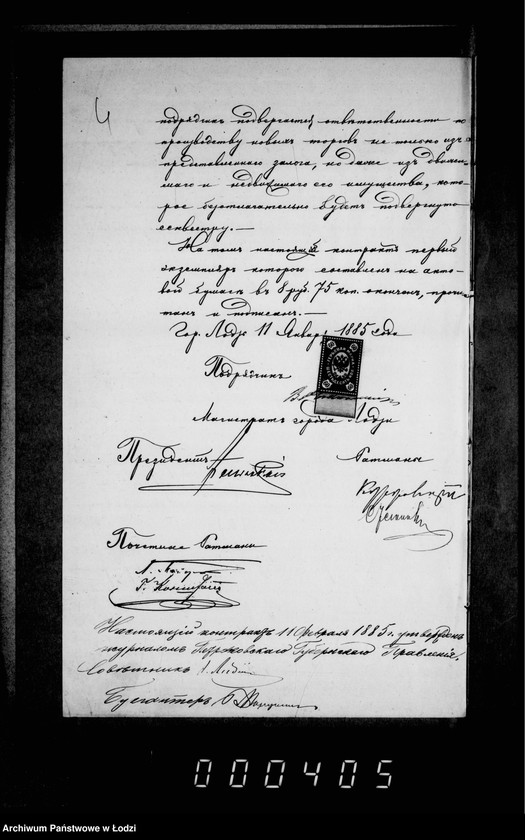 4
подрядчикъ подвергается отвѣтственности по
производству новыхъ торговъ не только изъ
представленнаго залога, но даже изъ движи-
маго и недвижимаго его имущества, кото-
рое безотлагательно будетъ подвергнуто
секвестру.—
На томъ настоящій контрактъ первый
экземпляръ котораго составленъ на акто-
вой бумагѣ въ 8 руб. 75 коп. оконченъ, прочи-
танъ и подписанъ.—
Гор. Лодзь 11 Января 1885 года
Подрядчикъ
Магистратъ города Лодзи
Президентъ
Ратманы
Почетные Ратманы
Настоящій контрактъ 11 Февраля 1885 г. утвержденъ
журналомъ Петроковскаго Губернскаго Правленія.
Совѣтникъ
Бухгалтеръ
000405
Archiwum Państwowe w Łodzi